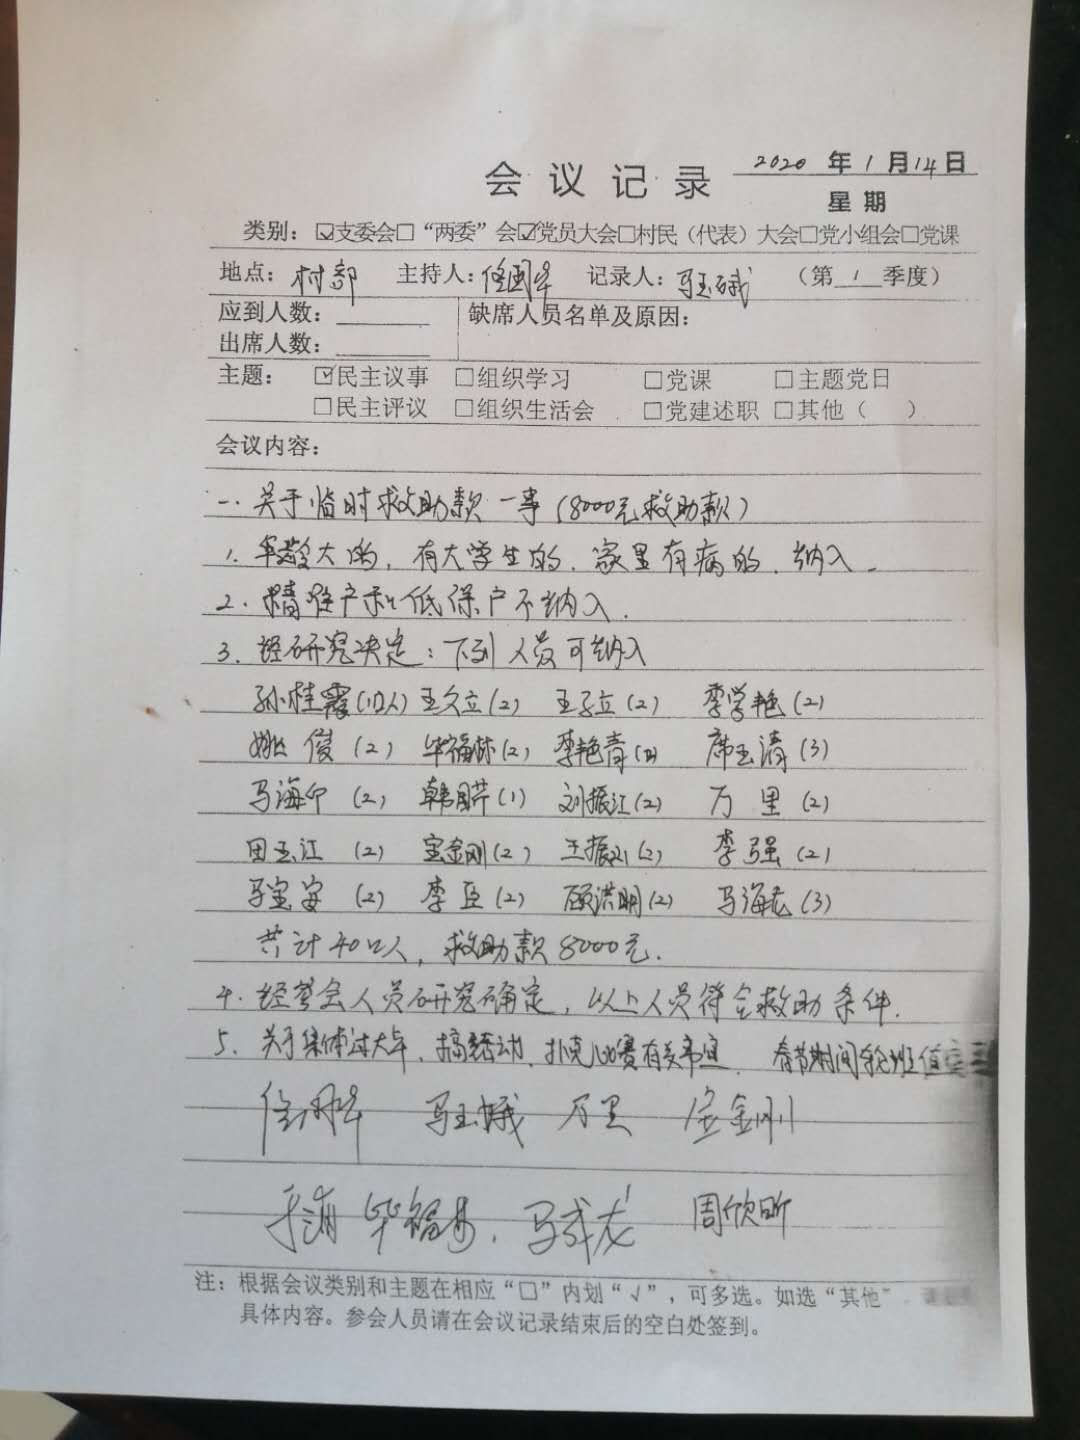 会议记录 2020 年 1 月 14 日
星期
类别：☑支委会□“两委”会☑党员大会□村民（代表）大会□党小组会□党课
地点：村部 主持人：佟国华 记录人：马玉娥 （第 1 季度）
应到人数： 缺席人员名单及原因：
出席人数：
主题： ☑民主议事 □组织学习 □党课 □主题党日
□民主评议 □组织生活会 □党建述职 □其他（ ）
会议内容：
一、关于临时救助款一事（8000元救助款）
1. 年龄大的，有大学生的，家里有病的，纳入。
2. 精准户和低保户不纳入.
3. 经研究决定：下列人员可纳入
孙桂霞(1口人) 王久立(2) 王子立(2) 李学艳(2)
姚俊(2) 毕福林(2) 李艳青 席玉清(3)
马海 (2) 韩 芹(1) 刘振江(2) 万里(2)
田玉江(2) 宝金刚(2) 王振 (2) 李强(2)
马宝安(2) 李臣(2) 顾洪明(2) 马海龙(3)
共计40口人，救助款8000元.
4. 经参会人员研究确定，以上人员符合救助条件.
5. 关于集体过大年，搞活动，扑克比赛有关事宜. 春节期间轮班值
佟国华 马玉娥 万里 宝金刚
毕福 马成龙 周欣昕
注：根据会议类别和主题在相应“□”内划“√”，可多选。如选“其他”
具体内容。参会人员请在会议记录结束后的空白处签到。